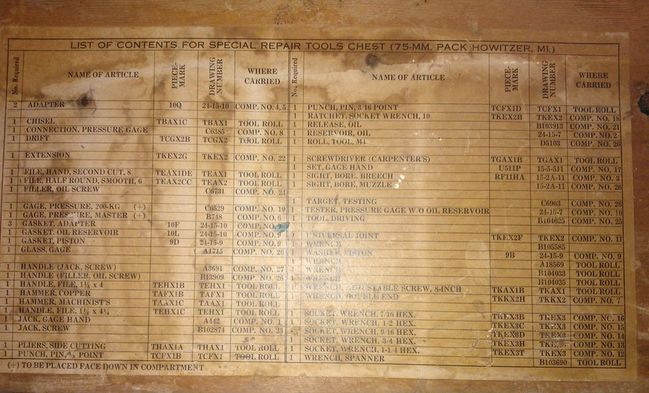 LIST OF CONTENTS FOR SPECIAL REPAIR TOOLS CHEST (75-MM. PACK HOWITZER, MI.)
No. Required NAME OF ARTICLE PIECE-MARK DRAWING NUMBER WHERE CARRIED
2 ADAPTER 10Q 24-15-10 COMP. NO. 4, 5
1 CHISEL TBAX1C TBAX1 TOOL ROLL
1 CONNECTION, PRESSURE GAGE C6385 COMP. NO. 8
1 DRIFT TCGX2B TCGX2 TOOL ROLL
1 EXTENSION TKEX2G TKEX2 COMP. NO. 22
1 FILE, HAND, SECOND CUT, 8 TEAX1DE TEAX1 TOOL ROLL
1 FILE, HALF ROUND, SMOOTH, 6 TEAX2CC TEAX2 TOOL ROLL
1 FILLER, OIL SCREW C6731 COMP. NO.
1 GAGE, PRESSURE, 200-KG (+) C6529 COMP. NO. 10
1 GAGE, PRESSURE, MASTER (+) B748 COMP. NO. 6
3 GASKET, ADAPTER 10F 24-15-10 COMP. NO.
1 GASKET, OIL RESERVOIR 10L 24-15-10 COMP. NO. 9
1 GASKET, PISTON 9D 24-15-9 COMP. NO. 9
1 GLASS, GAGE A1715 COMP. NO.
1 HANDLE (JACK, SCREW) A3691 COMP. NO. 27
1 HANDLE (FILLER, OIL, SCREW) B13909 COMP. NO.
1 HANDLE, FILE, 1⅛ x 4 TEHX1B TEHX1 TOOL ROLL
1 HAMMER, COPPER TAFX1B TAFX1 TOOL ROLL
1 HAMMER, MACHINIST'S TAAX1C TAAX1 TOOL ROLL
1 HANDLE, FILE TEHX1C TEHX1 TOOL ROLL
1 JACK, GAGE HAND A142 COMP. NO. 1
1 JACK, SCREW B102874 COMP. NO.
1 PLIERS, SIDE CUTTING THAX1A THAX1 TOOL ROLL
1 PUNCH, PIN, POINT TCFX1B TCFX1 TOOL ROLL
(+) TO BE PLACED FACE DOWN IN COMPARTMENT
No. Required NAME OF ARTICLE PIECE-MARK DRAWING NUMBER WHERE CARRIED
1 PUNCH, PIN, 3-16 POINT TCFX1D TCFX1 TOOL ROLL
1 RATCHET, SOCKET WRENCH, 10 TKEX2B TKEX2 COMP. NO. 18
1 RELEASE, OIL B103915 COMP. NO. 21
1 RESERVOIR, OIL 24-15-7 COMP. NO. 2
1 ROLL, TOOL, M4 D5103 COMP. NO. 26
1 SCREWDRIVER (CARPENTER'S) TGAX1B TGAX1 TOOL ROLL
1 SET, GAGE HAND U511P 15-5-511 COMP. NO. 17
1 SIGHT, BORE, BREECH RF11HA 15-2A-11 COMP. NO. 3
1 SIGHT, BORE, MUZZLE 15-2A-11 COMP. NO. 26
1 TARGET, TESTING C6963 COMP. NO. 28
1 TESTER, PRESSURE GAGE W/O OIL RESERVOIR 24-15-7 COMP. NO. 19
1 TOOL, DRIVING B104025 COMP. NO. 25
1 UNIVERSAL JOINT TKEX2F TKEX2 COMP. NO. 11
WRENCH B105585
WASHER, PISTON 9B 24-15-9 COMP. NO. 9
A18569 TOOL ROLL
1 WRENCH B104033 TOOL ROLL
1 WRENCH B104035 TOOL ROLL
SCREW, 8-INCH TKAX1B TKAX1 TOOL ROLL
WRENCH, DOUBLE END TKKX2H TKKX2 COMP. NO. 7
1 SOCKET, WRENCH, 7-16 HEX. TKEX3B TKEX3 COMP. NO. 16
1 SOCKET, WRENCH, 1-2 HEX. TKEX3C TKEX3 COMP. NO. 15
1 SOCKET, WRENCH, HEX. TKEX3D TKEX3 COMP. NO. 14
1 SOCKET, WRENCH, 3-4 HEX. TKEX3H TKEX3 COMP. NO. 13
1 SOCKET, WRENCH, 1-1-4 HEX. TKEX3T TKEX3 COMP. NO. 12
1 WRENCH, SPANNER B103690 TOOL ROLL